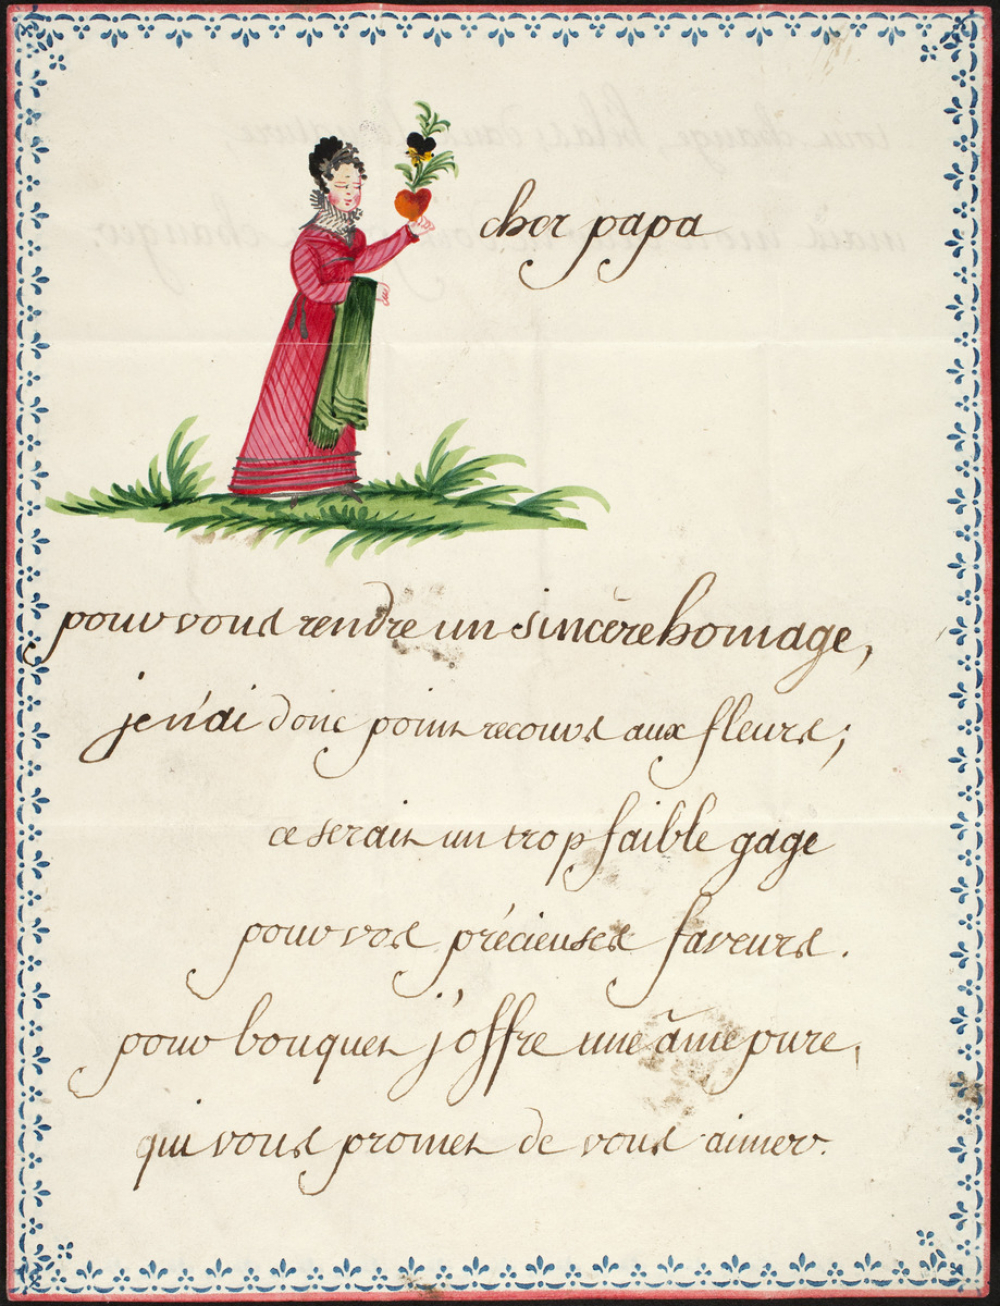 cher papa
pour vous rendre un sincère homage,
je n'ai donc point recours aux fleurs;
ce serait un trop faible gage
pour vos précieuses faveurs.
pour bouquet j'offre une âme pure,
qui vous promet de vous aimer.